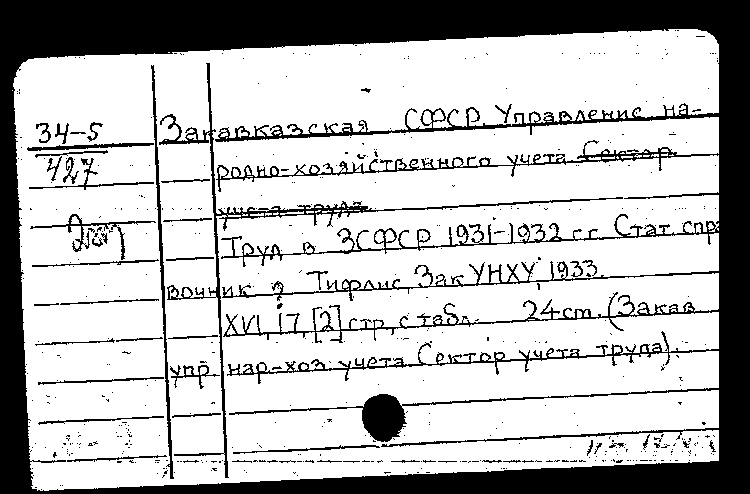 34-5
427
Закавказская СФСР. Управление на-
родно-хозяйственного учета Сектор
учета труда
Труд в ЗСФСР 1931-1932 г.г. Стат. спра
вочник Тифлис, ЗакУНХУ, 1933.
XVI, 17, [2] стр., с табл. 24 ст. (Закав
упр. нар-хоз. учета Сектор учета труда).